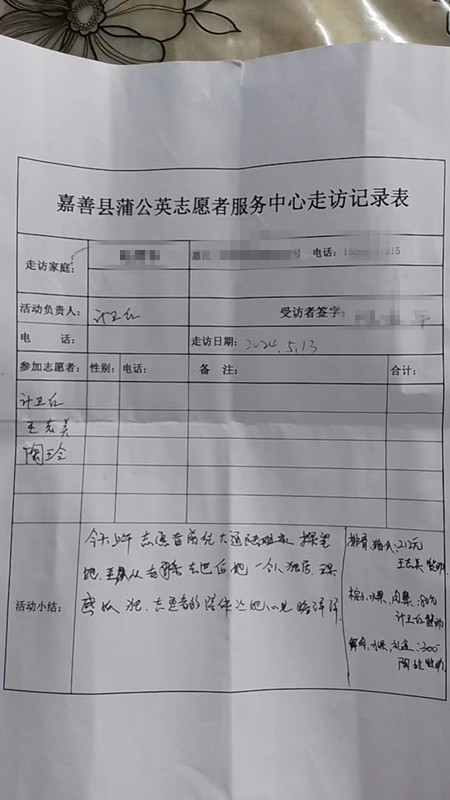 嘉善县蒲公英志愿者服务中心走访记录表
走访家庭: 惠民 号 电话: 15 215
活动负责人: 计卫红 受访者签字:
电 话: 走访日期: 2024.5.13
参加志愿者: 性别: 电话: 备 注: 合计:
计卫红
王志美
陶玲
活动小结:
今天上午志愿者前往大通陆姐家探望
她, 去世后她一个人独居,
感孤独,志愿者的陪伴让她心里暖洋洋
排骨, :212元
王志美赞助
粽子,水果,肉集:80元
计卫红赞助
水果, :300
陶玲赞助